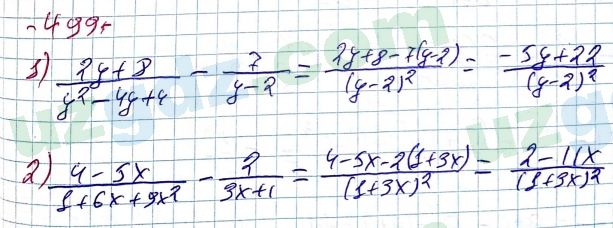 499.
1) (2y+8)/(y²-4y+4) - 7/(y-2) = (2y+8-7(y-2))/(y-2)² = (-5y+22)/(y-2)²
2) (4-5x)/(1+6x+9x²) - 2/(3x+1) = (4-5x-2(1+3x))/(1+3x)² = (2-11x)/(1+3x)²